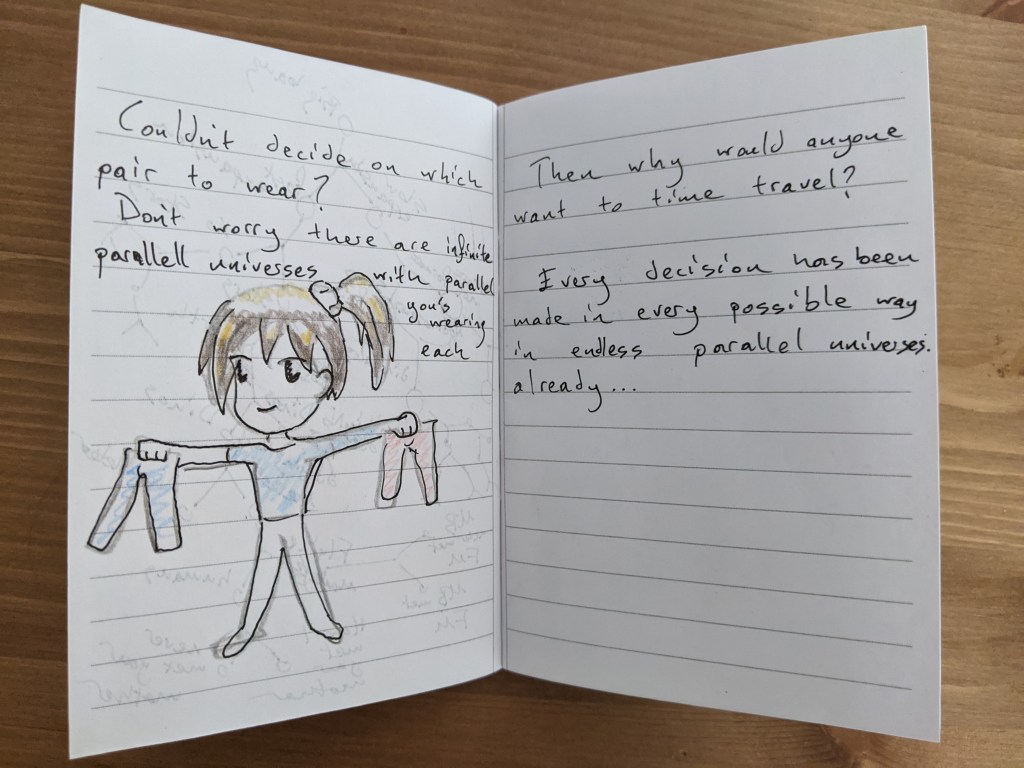 Couldn't decide on which
pair to wear?
Don't worry there are infinite
parallell universes with parallel
you's
wearing
each
Then why would anyone
want to time travel?
Every decision has been
made in every possible way
in endless parallel universes.
already...